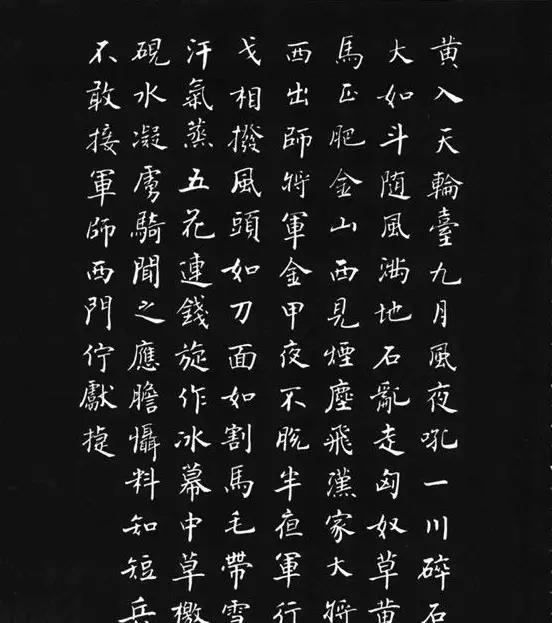 黄入天輪臺九月風夜吼一川碎石
大如斗随風滿地石亂走匈奴草黄
馬正肥金山西見煙塵飛漢家大將
西出師將軍金甲夜不脫半夜軍行
戈相撥風頭如刀面如割馬毛帶雪
汗氣蒸五花連錢旋作冰幕中草檄
硯水凝虜騎聞之應膽懾料知短兵
不敢接軍師西門佇獻捷